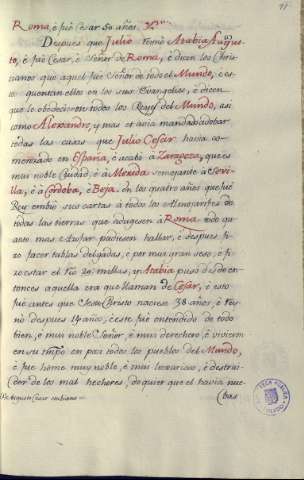 Roma, è fuè Cesar 50 años.
Despues que Julio tomò Arabia Augus-
to, è fuè Cesar, è Señor de Roma, è dicen los Chris-
tianos que aquel fuè Señor de todo el Mundo, è es-
to quentan ellos en los sus Evangelios, è dicen
que le obedecieron todos los Reyes del Mundo, asi
como Alexandro, y mas et avia mandado obrar
todas las cosas que Julio Cesar havia co-
menzado en España, è acabò à Zaragoza, que es
mui noble Ciudad, è à Merida semejante à Sevi-
lla, è à Cordoba, è Beja. En los quatro años que fuè
Rey embiò sus cartas à todos los Almojarifes de
todas las tierras que aduxesen à Roma todo qu-
anto mas Azofar pudiesen hallar, è despues fi-
zo facer tablas delgadas, è por mui gran seso, è fi-
zo estar el Rio 20 millas, y Arabia puso desde en-
tonces aquella era que llaman de Cesar, è esto
fuè antes que Jesu Christo naciese 38 años, è Rei-
nò despues 14 años, è este fuè entendido de todo
bien, è mui noble Señor, è mui derechero, è vivieron
en su tmpo en paz todos los pueblos del Mundo,
è fuè home muy noble, è mui luxurioso, è destrui-
dor de los mal hechores, do quier que el havia nue-
bas